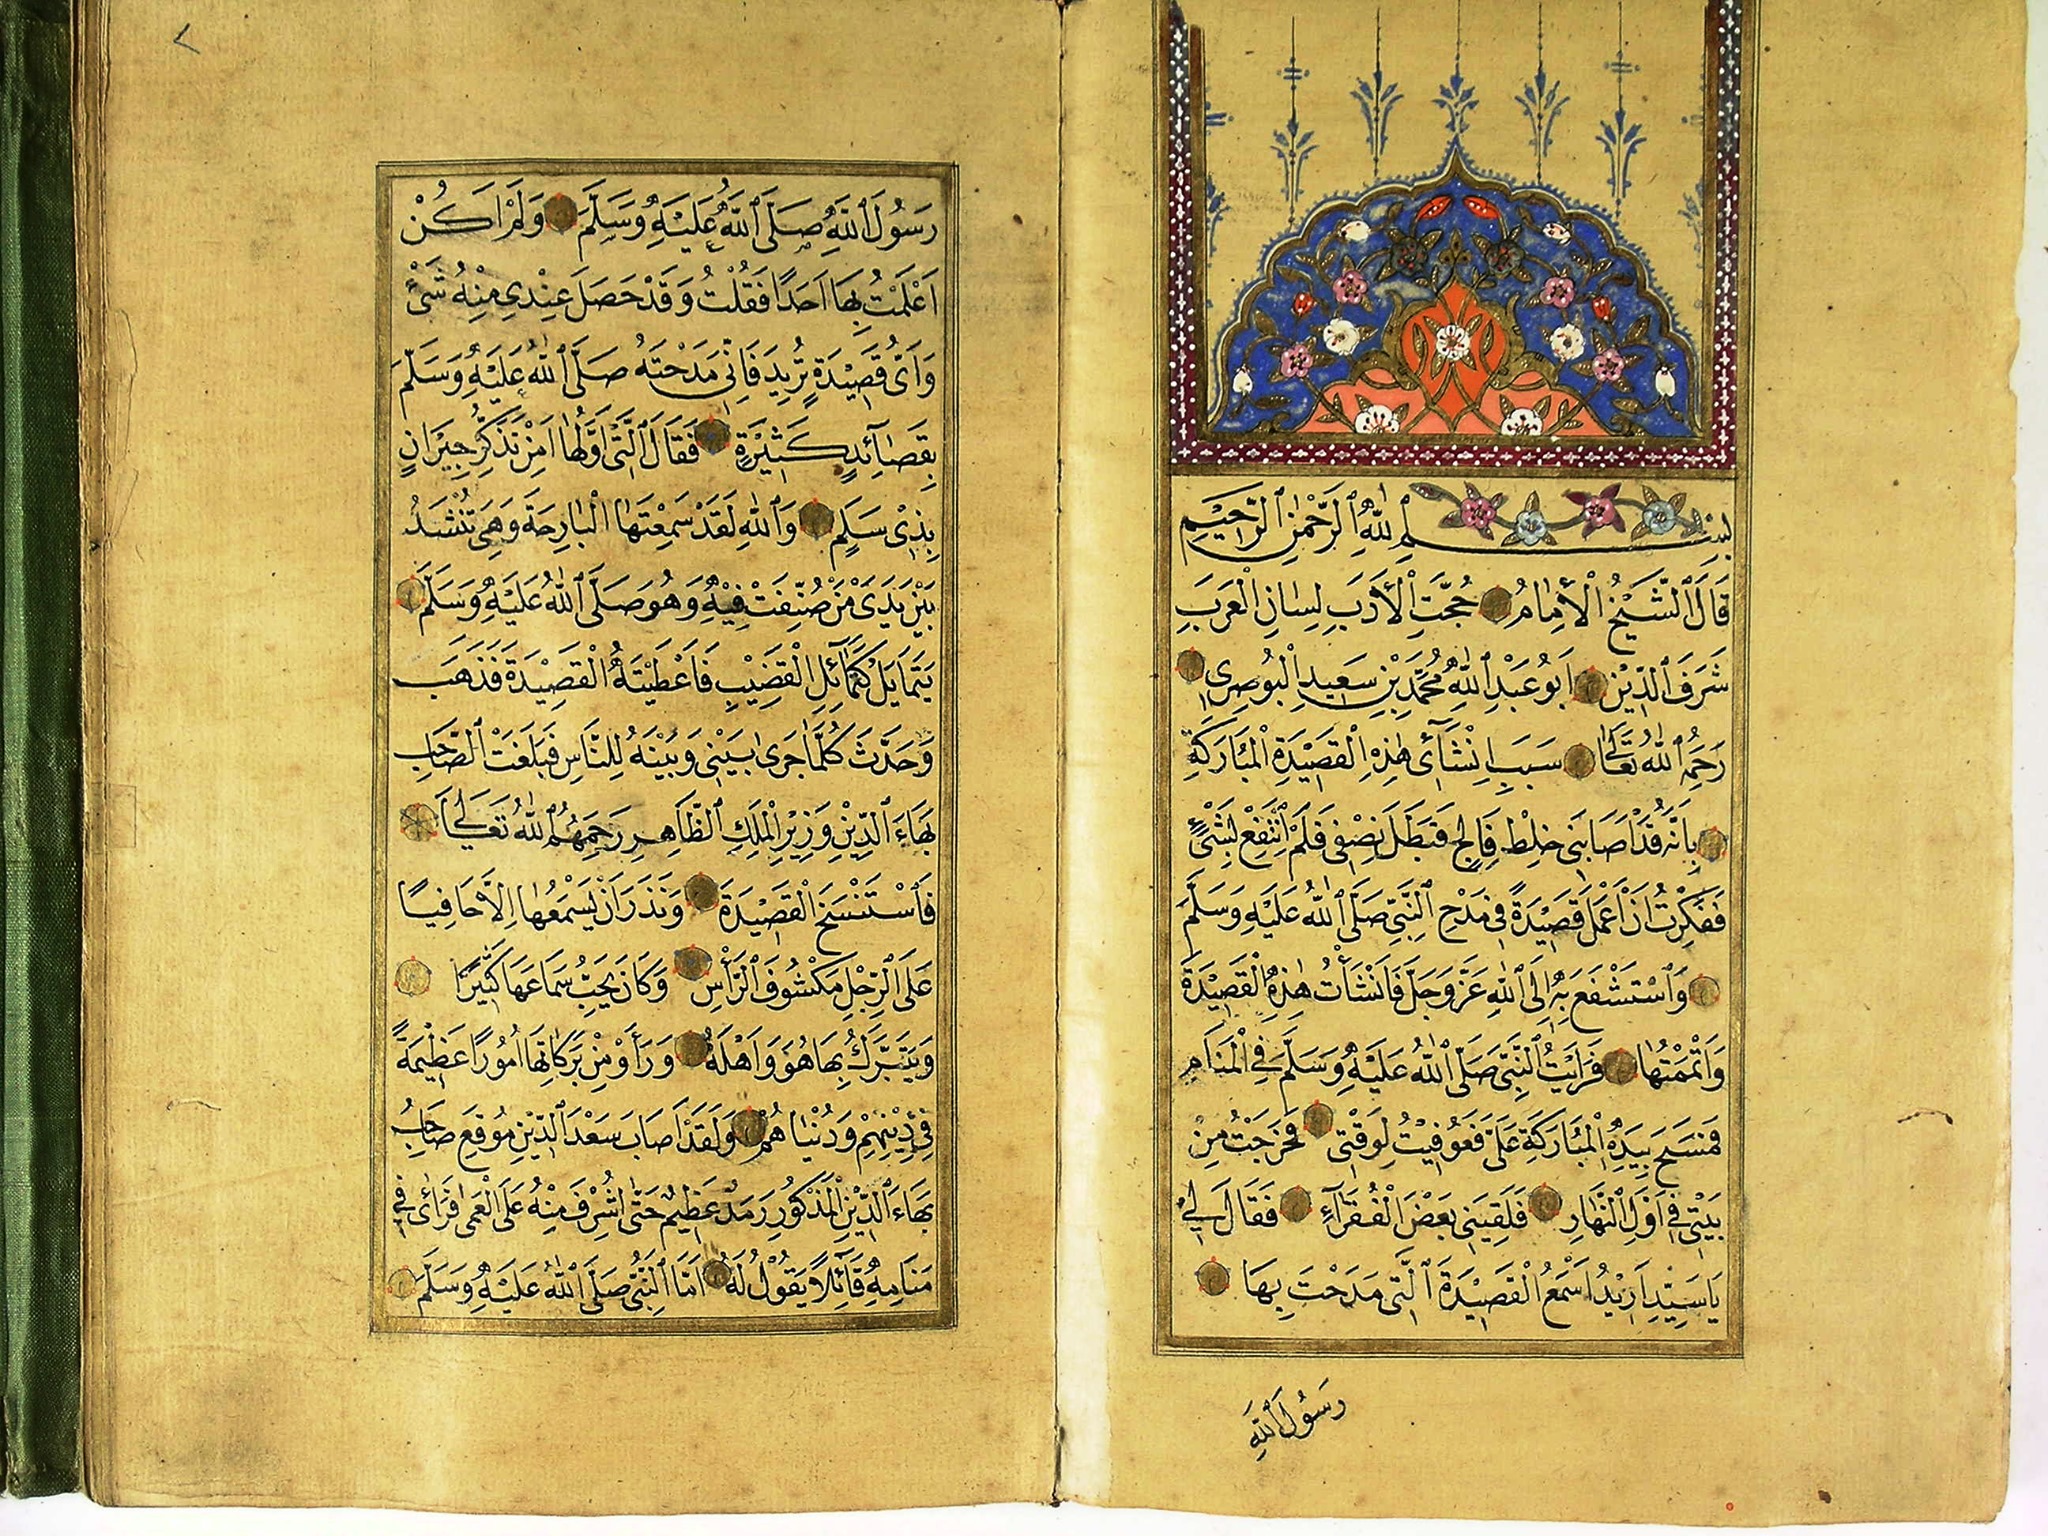 بِسْمِ اللهِ الرَّحْمٰنِ الرَّحِيْمِ
قَالَ الشَّيْخُ الْاِمَامُ حُجَّتِ الْاَدَبِ لِسَانِ الْعَرَبِ
شَرَفَ الدِّيْنِ اَبُو عَبْدِ اللهِ مُحَمَّدِ بْنِ سَعِيدِ الْبُوصِرِى
رَحِمَهُ اللهُ تَعَالٰى سَبَبِ اِنْشَآئِ هٰذِهِ الْقَصِيْدَةِ الْمُبَارَكَةِ
بِاَنَّهُ قَدْ اَصَابَنِى خِلِطْ فَالِجٍ فَبَطَلَ نِصْفِى فَلَمْ اَنْتَفِعْ بِشَىْءٍ
فَفَكَّرْتُ اَنْ اَعْمَلَ قَصِيْدَةً فِى مَدْحِ النَّبِىِّ صَلَّى اللهُ عَلَيْهِ وَسَلَّمَ
وَاَسْتَشْفَعَ بِهِ اِلَى اللهِ عَزَّ وَجَلَّ فَاَنْشَأْتُ هٰذِهِ الْقَصِيْدَةَ
وَاَتْمَمْتُهَا فَرَاَيْتُ النَّبِىَّ صَلَّى اللهُ عَلَيْهِ وَسَلَّمَ فِى الْمَنَامِ
فَمَسَحَ بِيَدِهِ الْمُبَارَكَةِ عَلَىَّ فَعُوفِيْتُ لِوَقْتِى فَخَرَجْتُ مِنْ
بَيْتِى فِى اَوَّلِ النَّهَارِ فَلَقِيَنِى بَعْضُ الْفُقَرَآءِ فَقَالَ لِى
يَا سَيِّدِ اُرِيْدُ اَسْمَعُ الْقَصِيْدَةَ الَّتِى مَدَحْتَ بِهَا
رَسُولَ اللهِ
رَسُولَ اللهِ صَلَّى اللهُ عَلَيْهِ وَسَلَّمَ وَلَمْ اَكُنْ
اَعْلَمْتُ بِهَا اَحَدًا فَقُلْتُ وَقَدْ حَصَلَ عِنْدِى مِنْهُ شَىْءٌ
وَاَىُّ قَصِيْدَةٍ تُرِيدُ فَاِنِّى مَدَحْتُهُ صَلَّى اللهُ عَلَيْهِ وَسَلَّمَ
بِقَصَآئِدٍ كَثِيْرَةٍ فَقَالَ الَّتِى اَوَّلُهَا اَمِنْ تَذَكُّرِ جِيْرَانٍ
بِذِىْ سَلَمٍ وَاللهِ لَقَدْ سَمِعْتُهَا الْبَارِحَةَ وَهِىَ تُنْشَدُ
بَيْنَ يَدَىْ مَنْ صُنِّفَتْ فِيْهِ وَهُوَ صَلَّى اللهُ عَلَيْهِ وَسَلَّمَ
يَتَمَايَلُ كَتَمَائِلِ الْقَضِيْبِ فَاَعْطَيْتُهُ الْقَصِيْدَةَ فَذَهَبَ
وَحَدَّثَ كُلَّمَا جَرٰى بَيْنِى وَبَيْنَهُ لِلنَّاسِ فَبَلَغَتْ الصَّاحِبِ
بَهَاءَ الدِّيْنِ وَزِيْرِ الْمَلِكِ الظَّاهِرِ رَحِمَهُمُ اللهُ تَعَالٰى
فَاَسْتَنْسَخَ الْقَصِيْدَةَ وَنَذَرَ اَنْ يَسْمَعُهَا اِلَّا حَافِيًا
عَلَى الرِّجْلِ مَكْشُوفَ الرَّأْسِ وَكَانَ يُحِبُّ سَمَاعَهَا كَثِيْرًا
وَيَتَبَرَّكُ بِهَا هُوَ وَاَهْلُهُ وَرَاَوْ مِنْ بَرَكَاتِهَا اُمُورًا عَظِيْمَةً
فِى دِيْنِهِمْ وَدُنْيَاهُمْ وَلَقَدْ اَصَابَ سَعْدَ الدِّيْنِ مُوَقِّعَ صَاحِبُ
بَهَاءَ الدِّيْنِ الْمَذْكُورِ رَمَدٌ عَظِيْمٌ حَتّٰى اَشْرَفَ مِنْهُ عَلَى الْعَمٰى فَرَاٰى فِى
مَنَامِهِ قَآئِلًا يَقُوْلُ لَهُ اَمَّا النَّبِىُّ صَلَّى اللهُ عَلَيْهِ وَسَلَّمَ